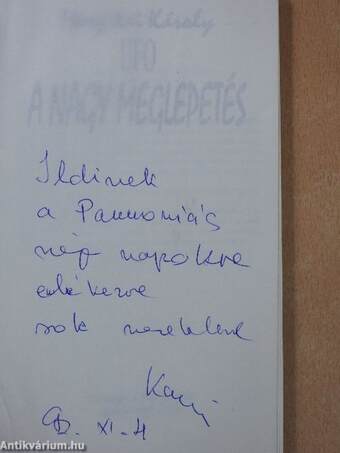 Király
UFO
A NAGY MEGLEPETÉS
Ildinek
a Pannoniás
régi napokra
emlékezve
sok szeretettel
XI. 4
Antikvárium.hu